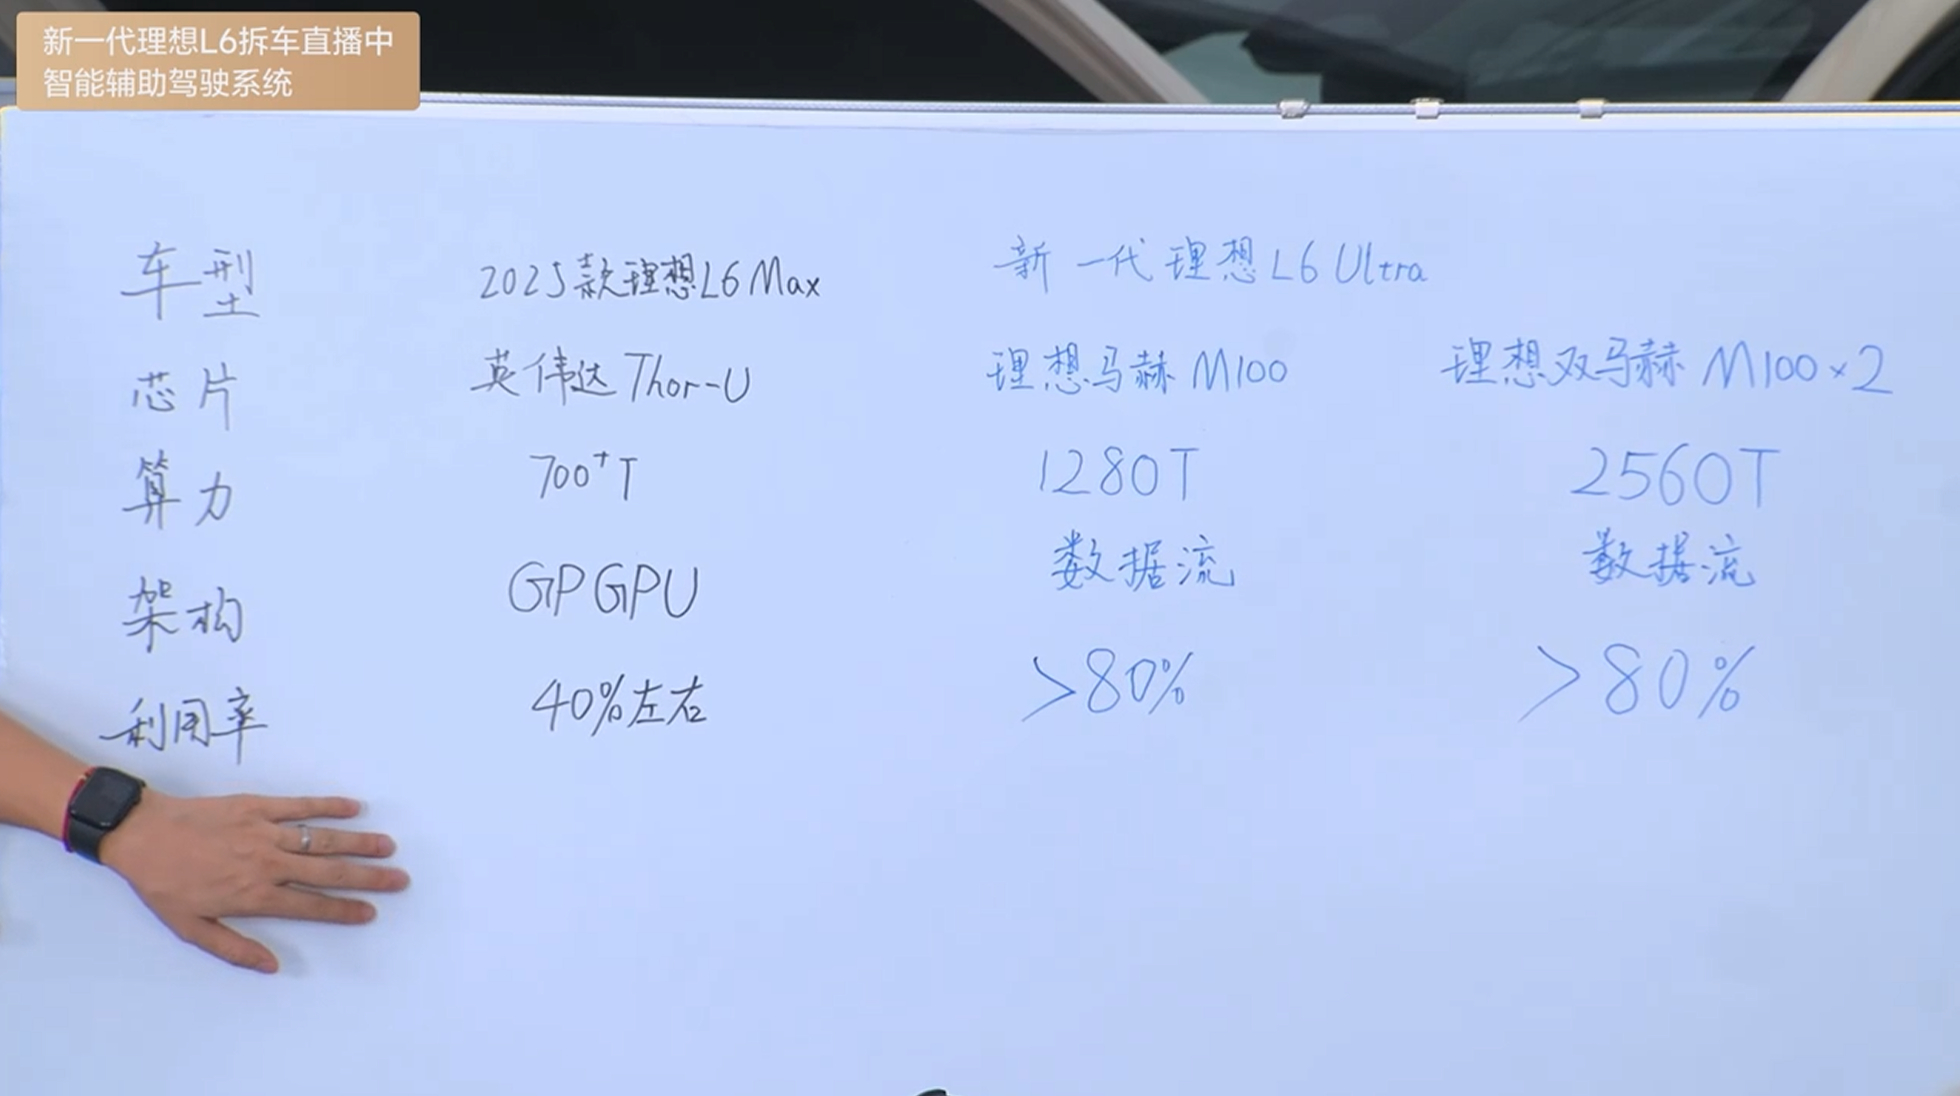 新一代理想L6拆车直播中
智能辅助驾驶系统
车型 2025款理想L6 Max 新一代理想L6 Ultra
芯片 英伟达 Thor-U 理想马赫 M100 理想双马赫 M100×2
算力 700⁺T 1280T 2560T
架构 GPGPU 数据流 数据流
利用率 40%左右 >80% >80%